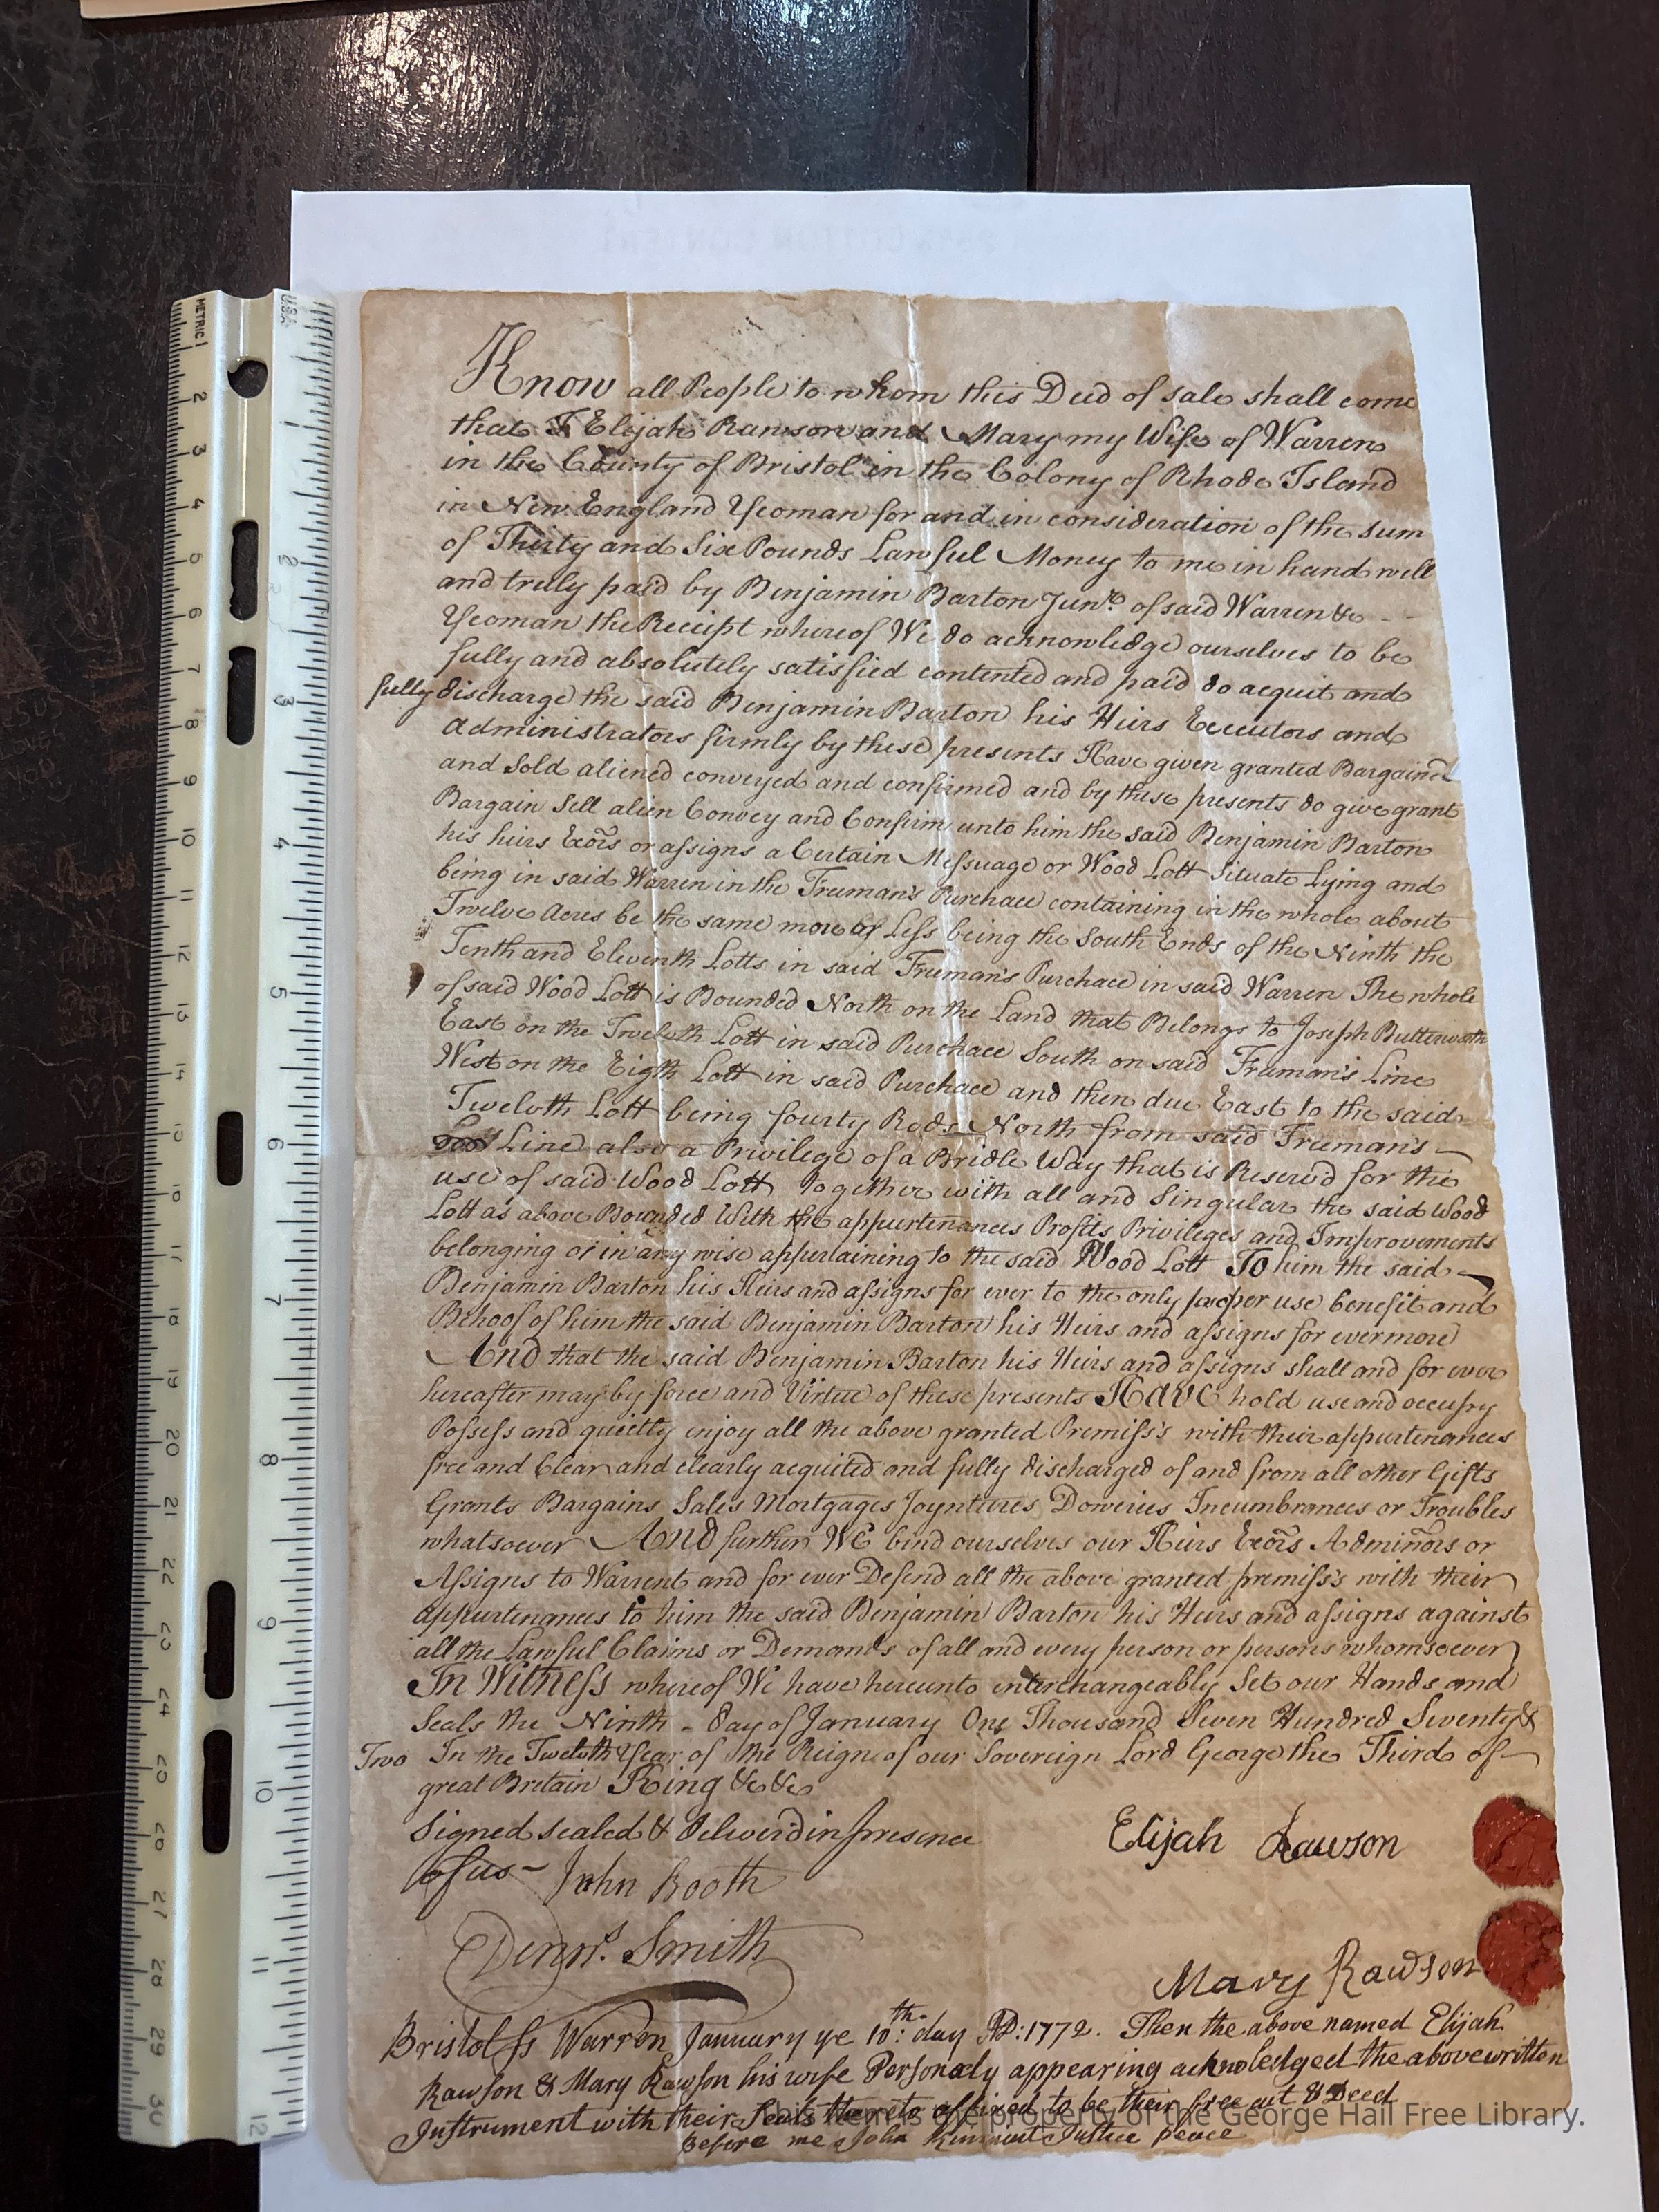 Know all People to whom this Deed of sale shall come
that I Elijah Rawson and Mary my Wife of Warren
in the County of Bristol in the Colony of Rhode Island
in New England Yeoman for and in consideration of the sum
of Thirty and Six Pounds Lawful Money to me in hand well
and truly paid by Benjamin Barton Junr. of said Warren &c
Yeoman the Receipt whereof We do acknowledge ourselves to be
fully and absolutely satisfied contented and paid do acquit and
fully discharge the said Benjamin Barton his Heirs Executors and
Administrators firmly by these presents Have given granted Bargained
and Sold aliened conveyed and confirmed and by these presents do give grant
Bargain Sell alien Convey and Confirm unto him the said Benjamin Barton
his heirs Exors or assigns a Certain Messuage or Wood Lott Situate Lying and
being in said Warren in the Freeman's Purchace containing in the whole about
Twelve Acres be the same more or Less being the South Ends of the Ninth the
Tenth and Eleventh Lotts in said Freeman's Purchace in said Warren The whole
of said Wood Lott is Bounded North on the Land that Belongs to Joseph Butterworth
East on the Twelvth Lott in said Purchace South on said Freman's Line
West on the Eigth Lott in said Purchace and then due East to the said
Twelvth Lott being fourty Rods North from said Freeman's
Line also a Privilege of a Bridle Way that is Reserv'd for the
use of said Wood Lott Together with all and Singular the said Wood
Lott as above Bounded With the appurtenances Profits Privileges and Improvements
belonging or in any wise appertaining to the said Wood Lott To him the said
Benjamin Barton his Heirs and assigns for ever to the only proper use benefit and
Behoof of him the said Benjamin Barton his Heirs and assigns for evermore
And that the said Benjamin Barton his Heirs and assigns shall and for ever
hereafter may by force and Virtue of these presents Have hold use and occupy
Possess and quietly enjoy all the above granted Premiss's with their appurtenances
free and Clear and clearly acquited and fully discharged of and from all other Gifts
Grants Bargains Sales Mortgages Joyntures Doweries Incumbrances or Troubles
whatsoever And further We bind ourselves our Heirs Exors Adminors or
Assigns to Warrent and for ever Defend all the above granted premiss's with their
appurtenances to him the said Benjamin Barton his Heirs and assigns against
all the Lawful Claims or Demands of all and every person or persons whomsoever
In Witness whereof We have hereunto interchangeably Set our Hands and
Seals the Ninth day of January One Thousand Seven Hundred Seventy &
Two In the Twelvth Year of the Reign of our Sovereign Lord George the Third of
great Britain King &c &c
Signed sealed & deliverd in presence
of us John Rooth
Elijah Rawson
Smith
Mary Rawson
Bristol ss Warren January ye 10th: day AD: 1772. Then the above named Elijah
Rawson & Mary Rawson his wife Personaly appearing acknoledged the above written
Instrument with their Seals thereto affixed to be their free act & Deed
Before me John Kinnicut Justice peace
This item is the property of the George Hail Free Library.
METRIC 1 2 3 4 5 6 7 8 9 10 11 12 13 14 15 16 17 18 19 20 21 22 23 24 25 26 27 28 29 30
USA 1 2 3 4 5 6 7 8 9 10 11 12